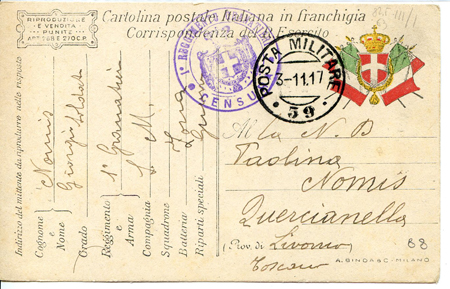 RIPRODUZIONE
E VENDITA
PUNITE
ART. 268 E 270 C.P.
Cartolina postale Italiana in franchigia
Corrispondenza del R. Esercito
1° REGGIMENTO
CENSURA
POSTA MILITARE
3-11.17
59
Indirizzo del mittente da riprodurre nelle risposte
Cognome e Nome Nomis Giorgio
Grado Soldato
Reggimento e Arma 1° Granatieri
Compagnia M.
Squadrone
Batteria Zona
Riparti speciali Guerra
Alla N. D
Paolina
Nomis
Quercianella
(Prov. di Livorno
Toscana
88
A. SINDASC-MILANO